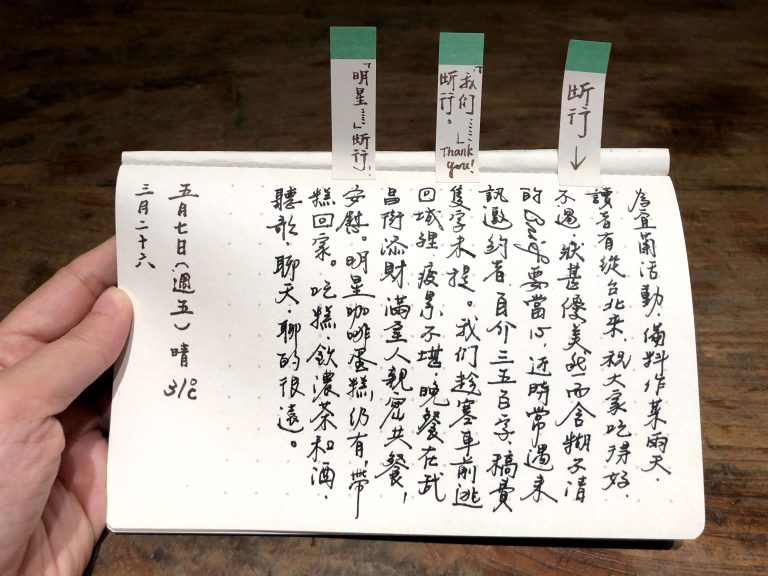 断行↓
「我们……」
断行。
Thank
you!
「明星……」断行,
為宜蘭活動,備料作菜兩天,
讀者有從台北来,祝大家吃得好,
不過,狀甚優美然而含糊不清
的Brief要當心,近時常遇来
訊邀約者,自介三五百字,稿費
隻字未提。我们趁塞車前逃
回城裡,疲累不堪,晚餐在武
昌街添財,滿室人親密共餐,
安慰。明星咖啡蛋糕仍有,帶
糕回家。吃糕,飲濃茶和酒,
聽歌,聊天,聊的很遠。
五月七日(週五)晴 31℃
三月二十六